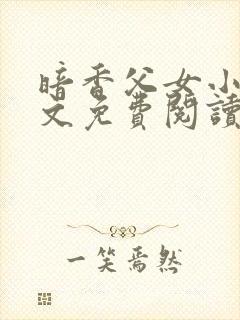 暗香父女小
文免費閱讀
一笑焉然